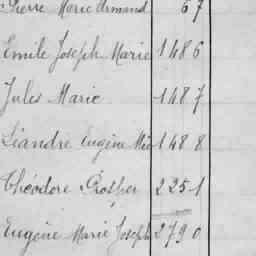 Pierre Marie Armand 67
Emile Joseph Marie 1486
Jules Marie 1487
Léandre Eugène Mie 1488
Théodore Prosper 2251
Eugène Marie Joseph 2790